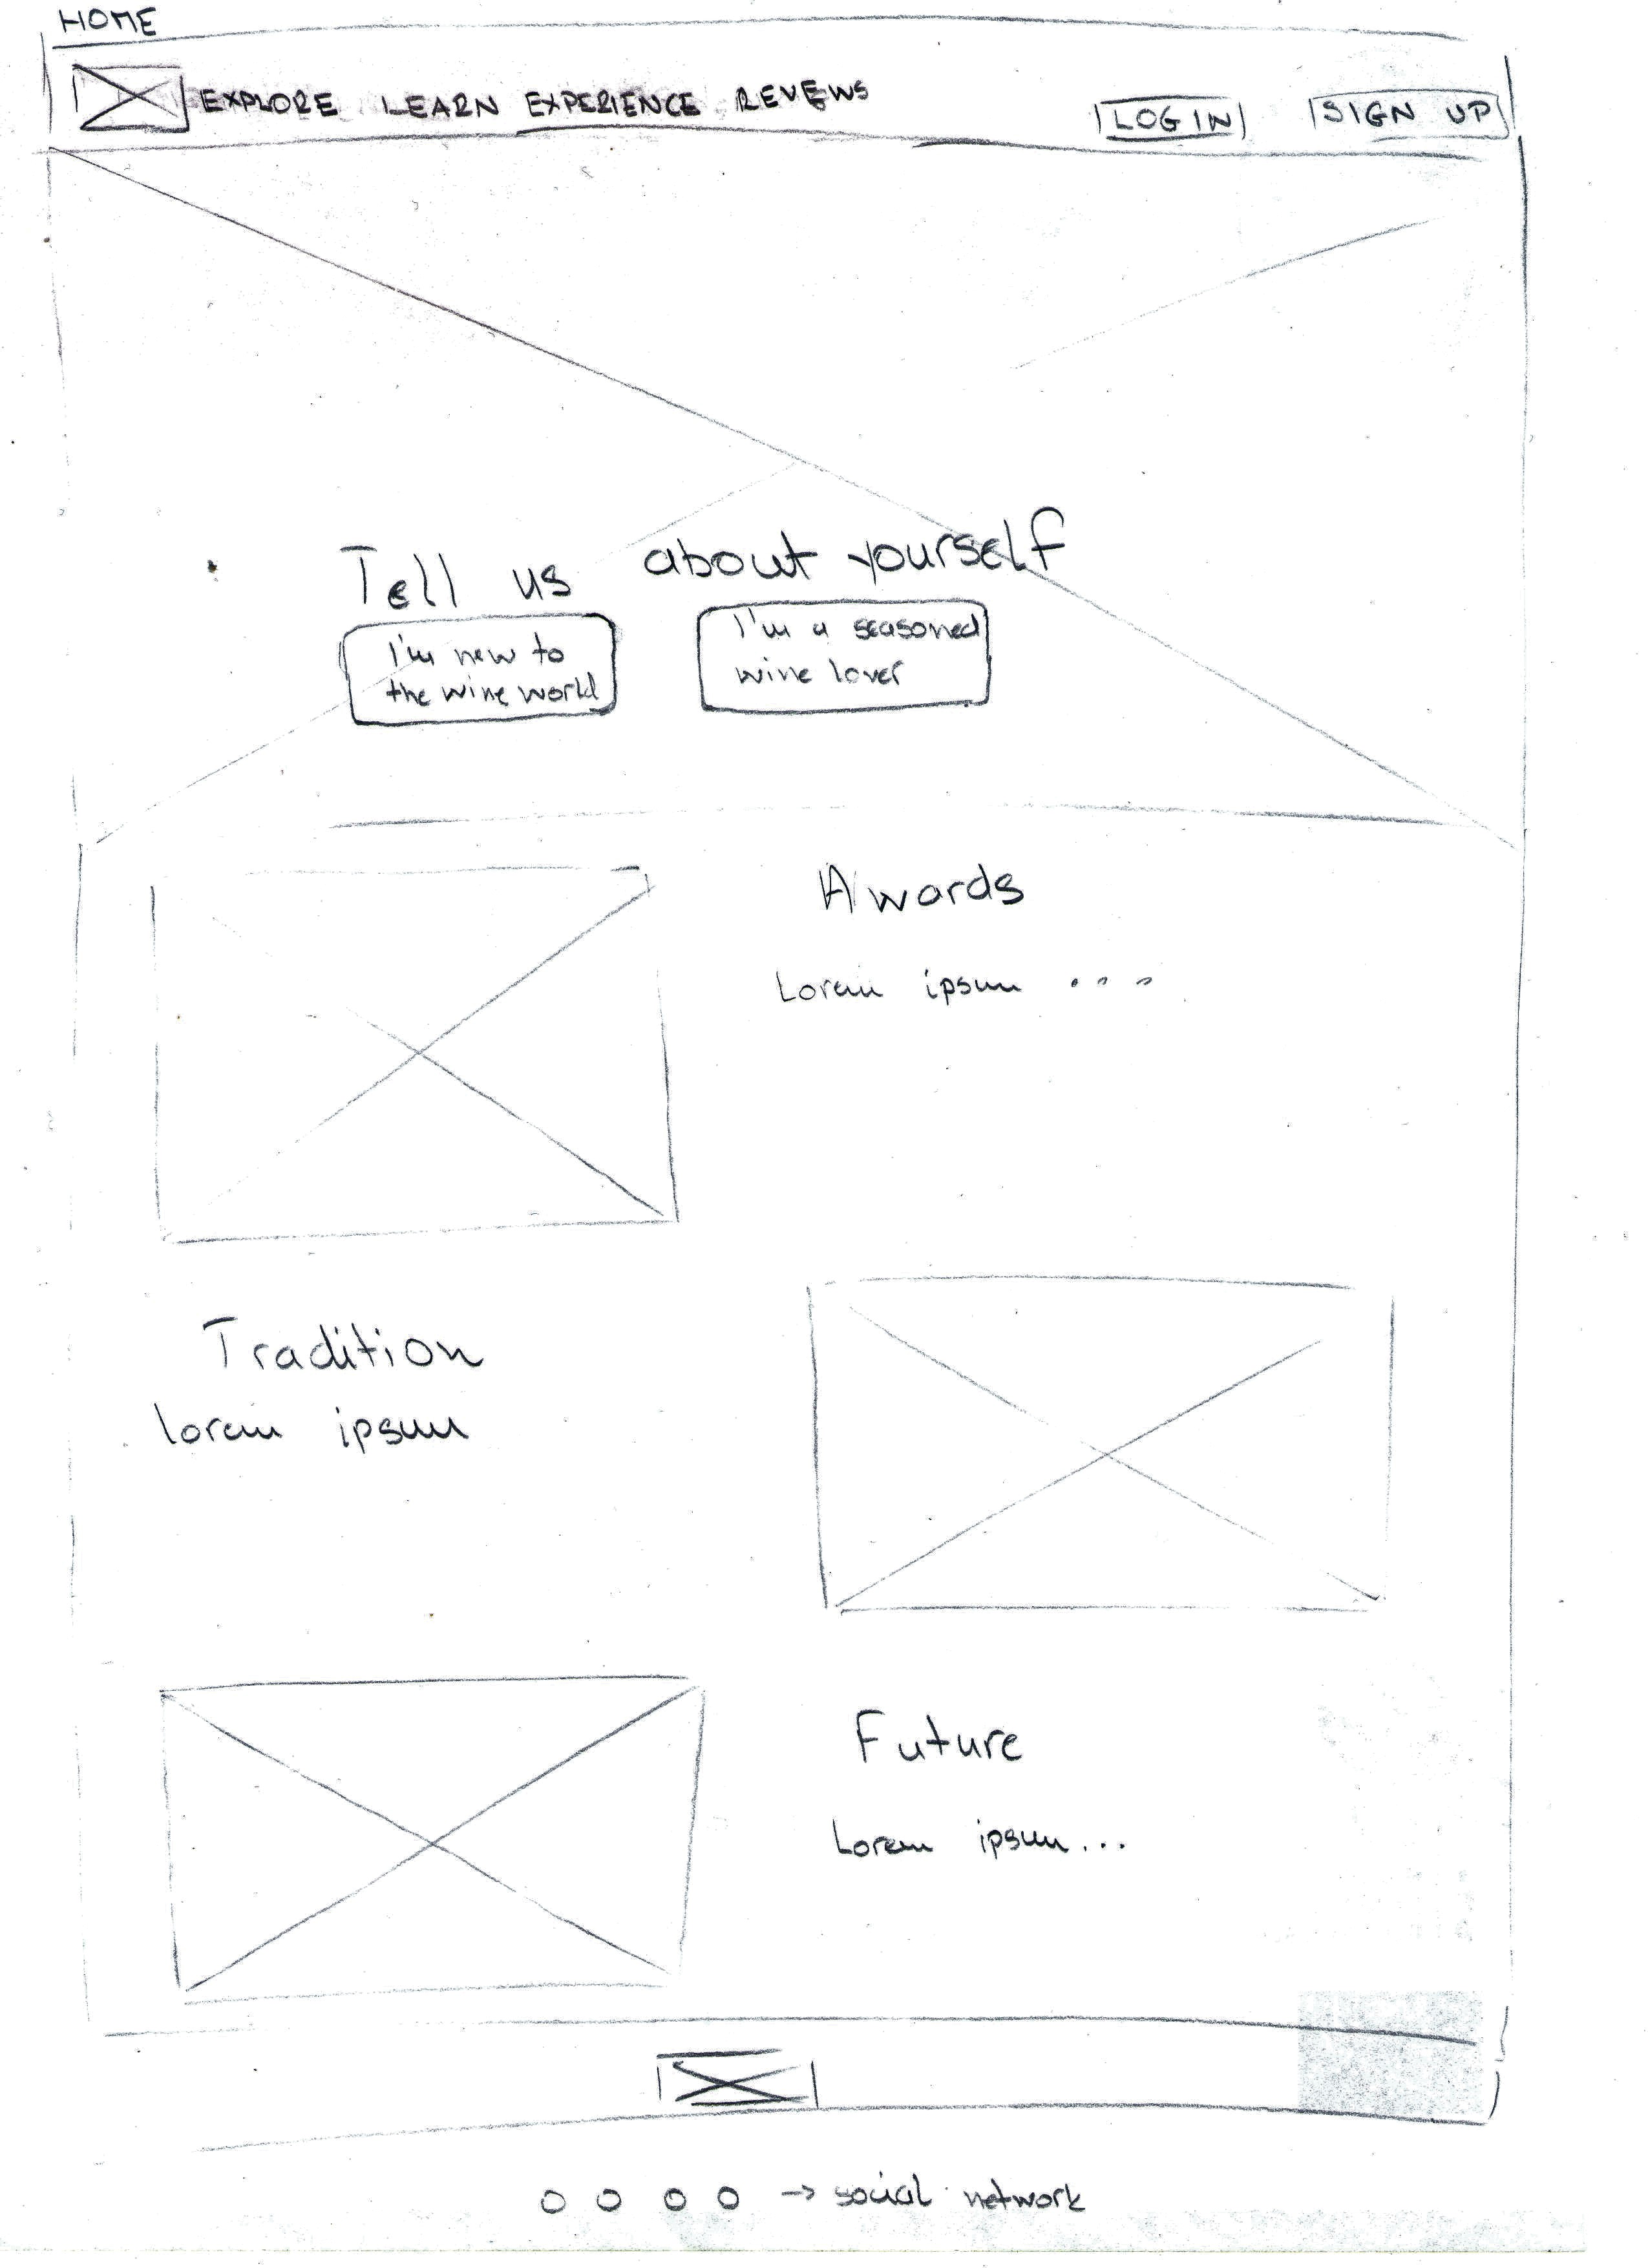 HOME
EXPLORE LEARN EXPERIENCE REVEWS
LOG IN
SIGN UP
Tell us about yourself
I'm new to
the wine world
I'm a seasoned
wine lover
Awards
Lorem ipsum ...
Tradition
lorem ipsum
Future
Lorem ipsum...
→ social network